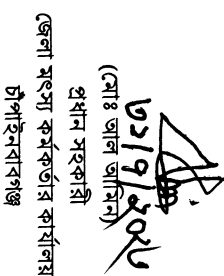 (মোঃ আল আমিন)
প্রধান সহকারী
জেলা মৎস্য কর্মকর্তার কার্যালয়
চাঁপাইনবাবগঞ্জ